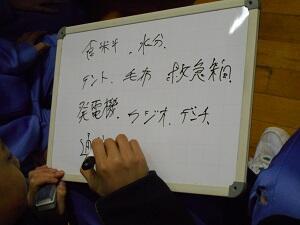 食料、水分、
テント、毛布 救急箱、
発電機、ラジオ、デンチ、